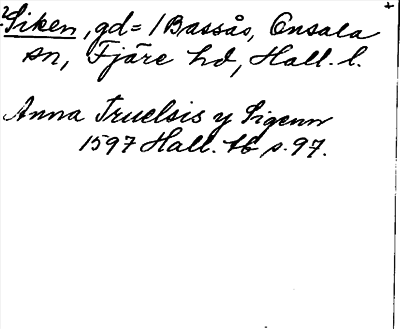 ?Siken, gd= / Bassås, Onsala
sn, Fjäre hd, Hall. l.
Anna Truelsis y Sigenn
1597 Hall. tb s. 97.